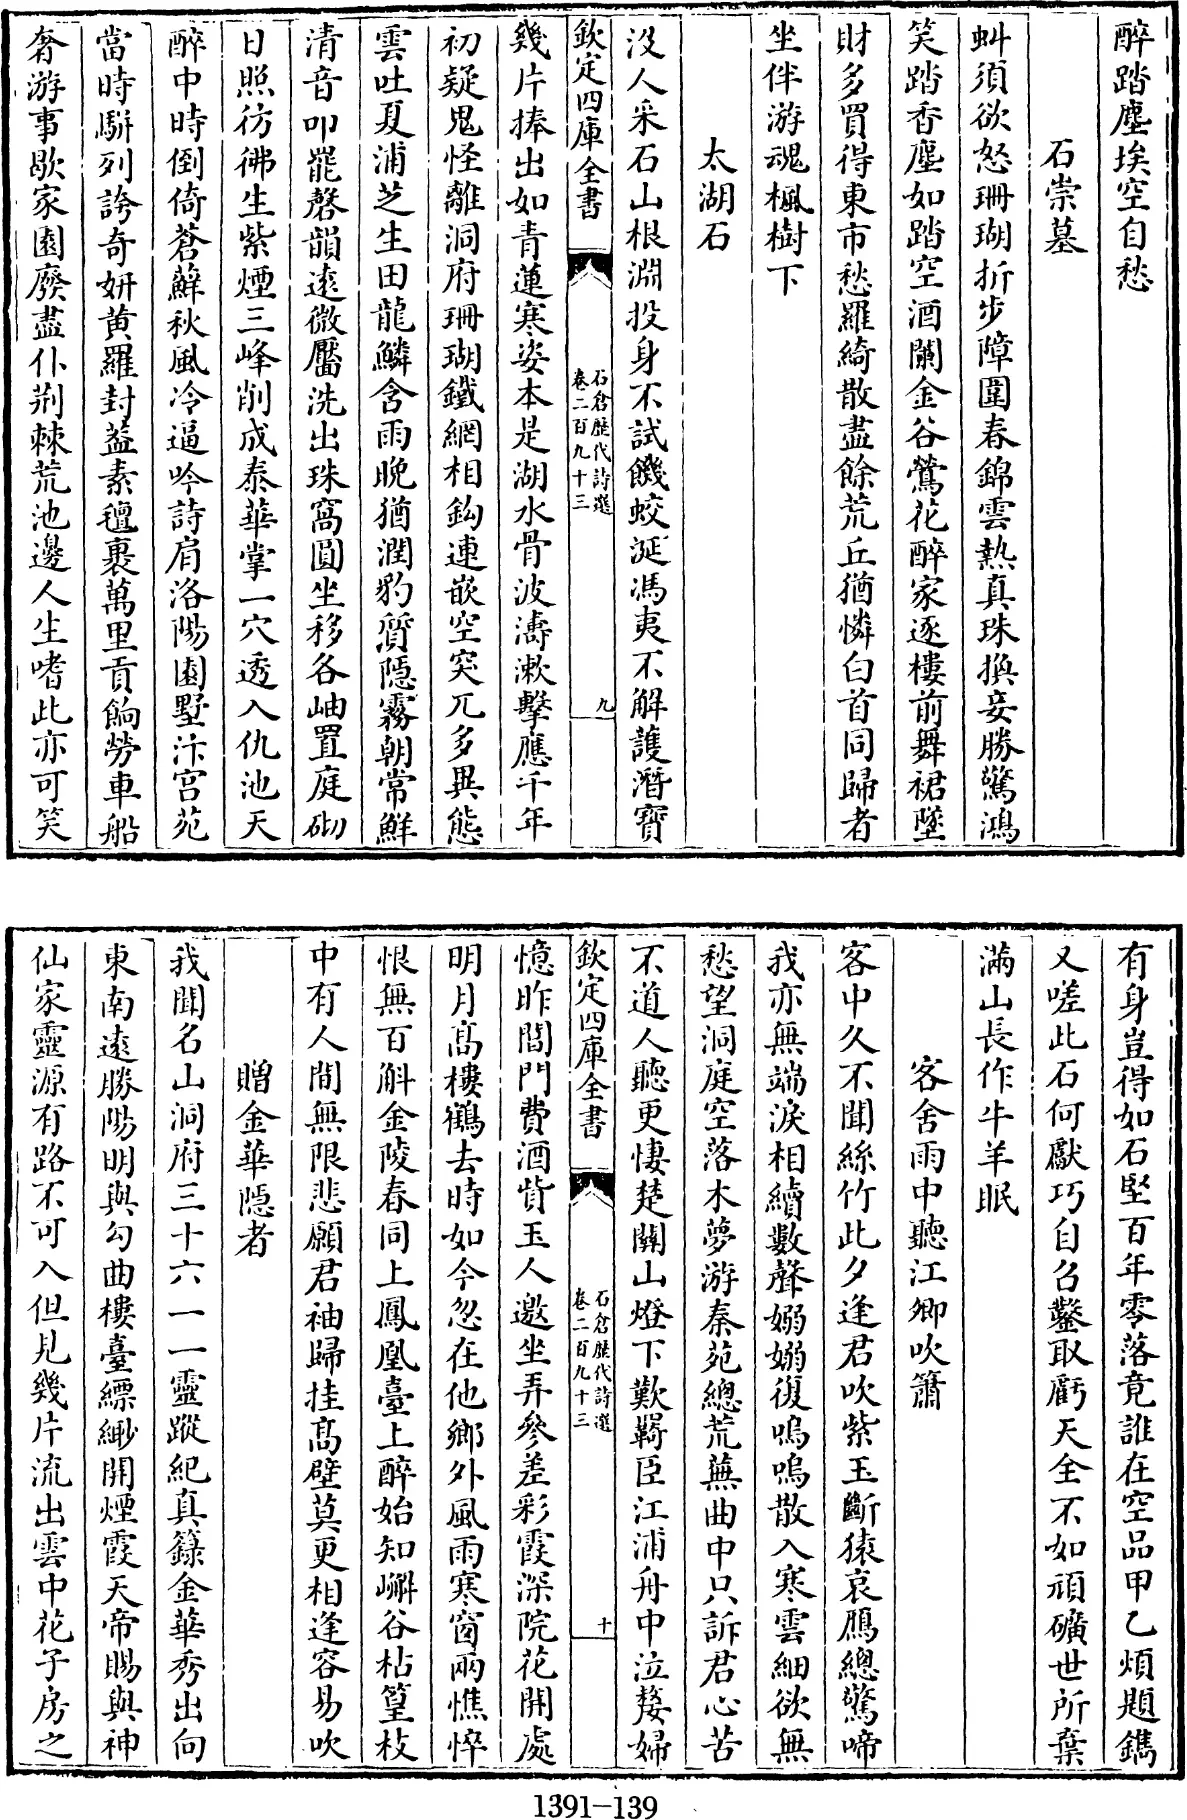 醉踏塵埃空自愁
石崇墓
虯須欲怒珊瑚折步障圍春錦雲熱真珠換妾勝驚鴻
笑踏香塵如踏空酒闌金谷鶯花醉家逐樓前舞裙墜
財多買得東市愁羅綺散盡餘荒丘猶憐白首同歸者
坐伴游魂楓樹下
太湖石
没人采石山根淵投身不試饑蛟涎馮夷不解護潛寶
欽定四庫全書
石倉歷代詩選
卷二百九十三
九
幾片捧出如青蓮寒姿本是湖水骨波濤漱擊應千年
初疑鬼怪離洞府珊瑚鐵網相鈎連嵌空突兀多異態
雲吐夏浦芝生田龍鱗含雨晚猶潤豹質隱霧朝常鮮
清音叩罷磬韻遠微靨洗出珠窩圓坐移各岫置庭砌
日照彷彿生紫煙三峰削成泰華掌一穴透入仇池天
醉中時倒倚蒼蘚秋風冷逼吟詩肩洛陽園墅汴宫苑
當時駢列誇奇妍黄羅封蓋素氊裹萬里貢餉勞車船
奢游事歇家園廢盡仆荆棘荒池邊人生嗜此亦可笑
有身豈得如石堅百年零落竟誰在空品甲乙煩題鐫
又嗟此石何獻巧自召鑿取虧天全不如頑礦世所棄
滿山長作牛羊眠
客舍雨中聽江卿吹簫
客中久不聞絲竹此夕逢君吹紫玉斷猿哀鴈總驚啼
我亦無端淚相續數聲嫋嫋復嗚嗚散入寒雲細欲無
愁望洞庭空落木夢游秦苑總荒蕪曲中只訴君心苦
不道人聽更悽楚關山燈下歎羇臣江浦舟中泣嫠婦
欽定四庫全書
石倉歷代詩選
卷二百九十三
十
憶昨閶門費酒貲玉人邀坐弄參差彩霞深院花開處
明月髙樓鶴去時如今忽在他鄉外風雨寒窗兩憔悴
恨無百斛金陵春同上鳳凰臺上醉始知嶰谷枯篁枝
中有人間無限悲願君袖歸挂髙壁莫更相逢容易吹
贈金華隱者
我聞名山洞府三十六一一靈蹤紀真籙金華秀出向
東南遠勝陽明與勾曲樓臺縹緲開煙霞天帝賜與神
仙家靈源有路不可入但見幾片流出雲中花子房之
1391-139